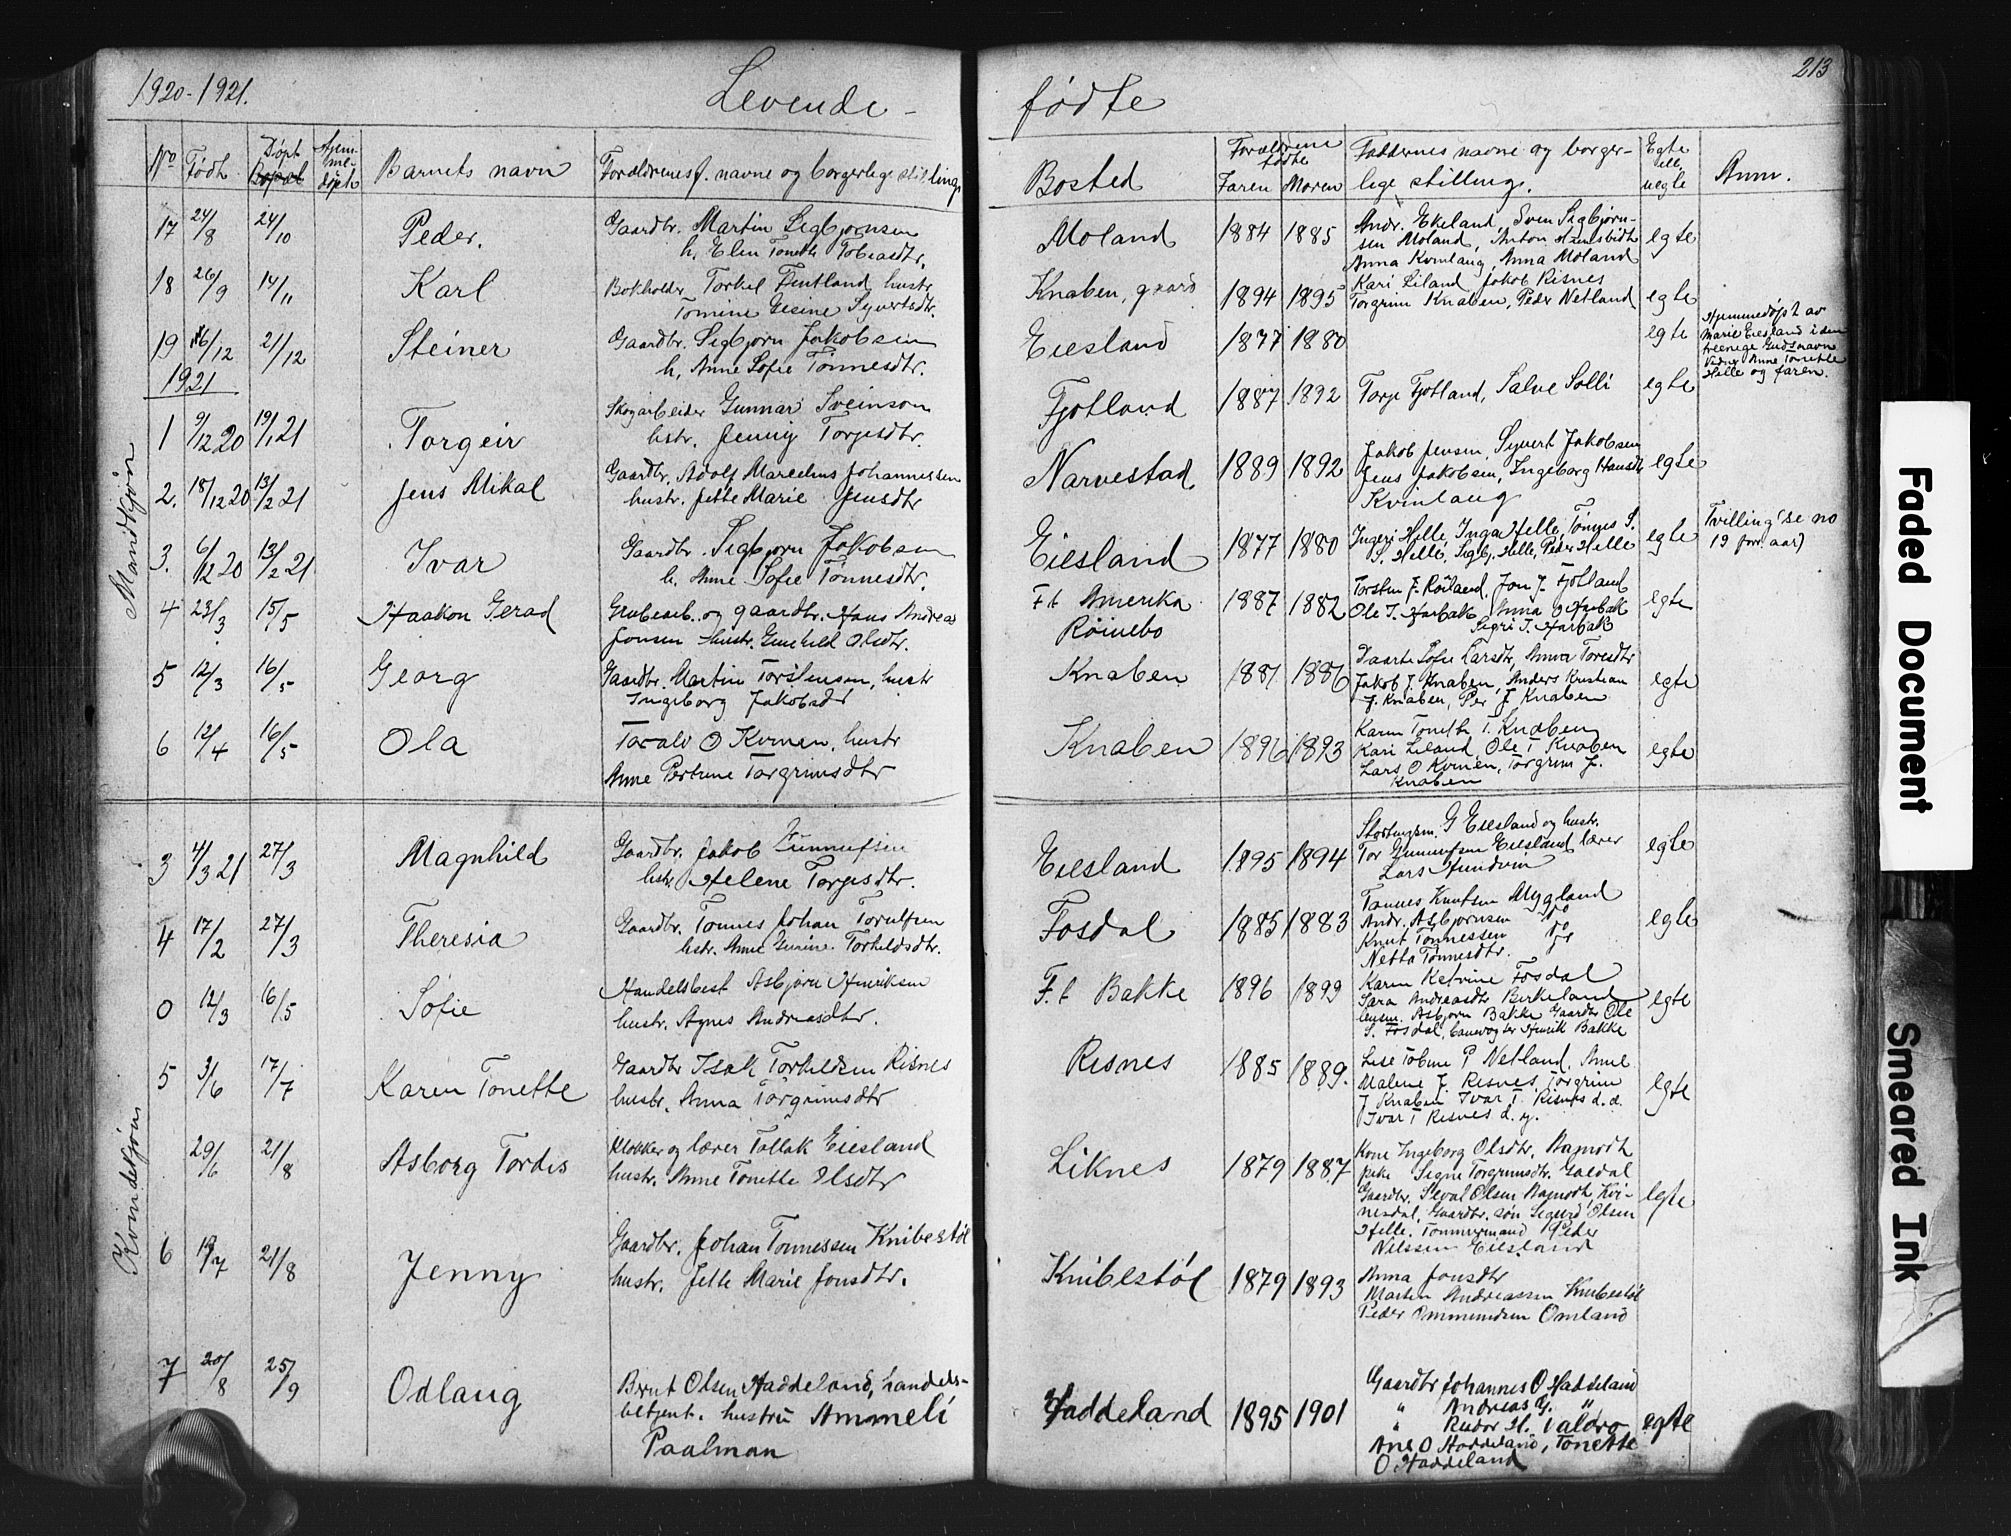 1920-1921. Levende - fødte 213
No Født Døpt Hjem-me-døpt Barnets navn Forældrenes f. navne og borgerlige stilling
Bosted Forældrene fødte Faren Moren Faddernes navne og borger-lige stilling. Egte ell. uegte Anm.
Mandkjøn
17 24/8 24/10 Peder. Gaardbr. Martin Sigbjørnsen
h. Elen Tonette Tobiasdtr.
Moland 1884 1885 Andr. Ekeland, Sven Sigbjørn-
sen Moland, Anton
Anna Kvinlaug, Anna Moland
egte
18 26/9 14/11 Karl Bokholder Torkel Fintland hustr.
Tomine Gesine Syvertsdtr.
Knaben, gaard 1894 1895 Kari Liland, Jakob Risnes
Torgrim Knaben, Peder Netland egte
19 16/12 21/12 Steinar Gaardbr. Sigbjørn Jakobsen
h. Anne Sofie Tønnesdtr.
Eiesland 1877 1880 egte
Hjemmedøpt av
Marie Eiesland i den
treenige Guds navn
Vidner Anne Tonette
Hille og faren.
1921
1 9/12 20 19/1 21 Torgeir Skogarbeider Gunnar Sveinson
hstr. Jenny Torjesdtr.
Fjotland 1887 1892 Torje Fjotland, Salve Solli egte
2. 18/12 20 13/2 21 Jens Mikal Gaardbr. Adolf Marcelius Johannessen
hustr. Jette Marie Jensdtr
Narvestad 1889 1892 Jakob Jensen, Syvert Jakobsen
Jens Jakobsen, Ingeborg Hansdtr
Kvinlaug
egte
3. 6/12 20 13/2 21 Ivar Gaardbr. Sigbjørn Jakobsen
h. Anne Sofie Tønnesdtr.
Eiesland 1877 1880 Ingeri Hille, Inga Hille, Tønnes S.
S. Hille, Sigb. Hille, Peder Hille
egte Tvilling (se no
19 forr. aar)
4 23/3 15/5 Haakon Gerad Grubearb. og gaardbr. Hans Andreas
Jonsen hustr. Gunhild Olsdtr.
F.t Amerika
Røinebo
1887 1882 Torsten J. Røiland, Jon J. Fjotland
Ole T. Harbak, Anna O Harbak
Sigri T. Harbak
egte
5 12/3 16/5 Georg Gaardbr. Martin Torstensen, hustr
Ingeborg Jakobsdtr
Knaben 1881 1886 Daarte Sofie Larsdtr, Anna Toresdtr
Jakob J. Knaben, Anders Kristian
J. Knaben, Per J Knaben
egte
6 12/4 16/5 Ola Toralv O Kvinen, hustr
Anne Pertrine Torgrimsdtr
Knaben 1896 1893 Karen Tonette T. Knaben
Kari Liland, Ole T Knaben
Lars O Kvinen, Torgrim J.
Knaben
egte
Kvindekjøn
3 4/3 21 27/3 Magnhild Gaardbr. Jakob Gunnufsen
hstr. Helene Torjesdtr.
Eiesland 1895 1894 Stortingsm. G Eiesland og hustr.
Tor Gunnufsen Eiesland, lærer
Lars
egte
4 17/2 27/3 Theresia Gaardbr. Tønnes Johan Torulfsen
hstr. Anne Gurine Torkeldsdtr.
Fosdal 1885 1883 Tønnes Knutsen Myggland
Andr. Asbjørnsen do
Knut Tønnessen do
Netta Tønnesdtr.
egte
0 12/3 16/5 Sofie Handelsbest Asbjørn Henriksen
hustr. Agnes Andreasdtr.
F.t Bakke 1896 1899 Karen Katrine Fosdal
Sara Andreasdtr Birkeland
Asbjørn Bakke Gaardbr Ole
S. Fosdal, banevogter Henrik Bakke
egte
5 3/6 17/7 Karen Tonette Gaardbr Isak Torkeldsen Risnes
hustr. Anna Torgrimsdtr
Risnes 1885 1889. Lise Tobine P Netland, Anne
Malene J. Risnes, Torgrim
J Knaben Ivar T. Risnes d.æ.
Ivar T Risnes d. y.
egte
29/6 21/8 Asborg Tordis Klokker og lærer Tollak Eiesland
hustr. Anne Tonette Olsdtr
Liknes 1879 1887 Kone Ingeborg Olsdtr, Aamodt
pike Signe Torgrimsdtr. Galdal
Gaardbr. Seval Olsen Aamodt, Kvi-
nesdal, Gaardbr. søn Sigurd Olsen
Hille. Tømmermand Peder
Nilssen Eiesland
egte
6 19/7 21/8 Jenny Gaardbr. Johan Tønnessen Knibestøl
hustr. Jette Marie Jonsdtr.
Knibestøl 1879 1893 Anna Jonsdtr
Martin Andreassen Knibestøl
Peder Ommundsen Omland
7 20/8 25/9 Odlaug Bernt Olsen Haddeland, handels-
betjent. hustru Ammeli
Paalman
Haddeland 1895 1901 Gaardbr Johannes O Haddeland
" Andreas G. "
" Reidar H. Valdro
Ane O Haddeland, Tonette
O Haddeland
egte
Faded Document
Smeared Ink